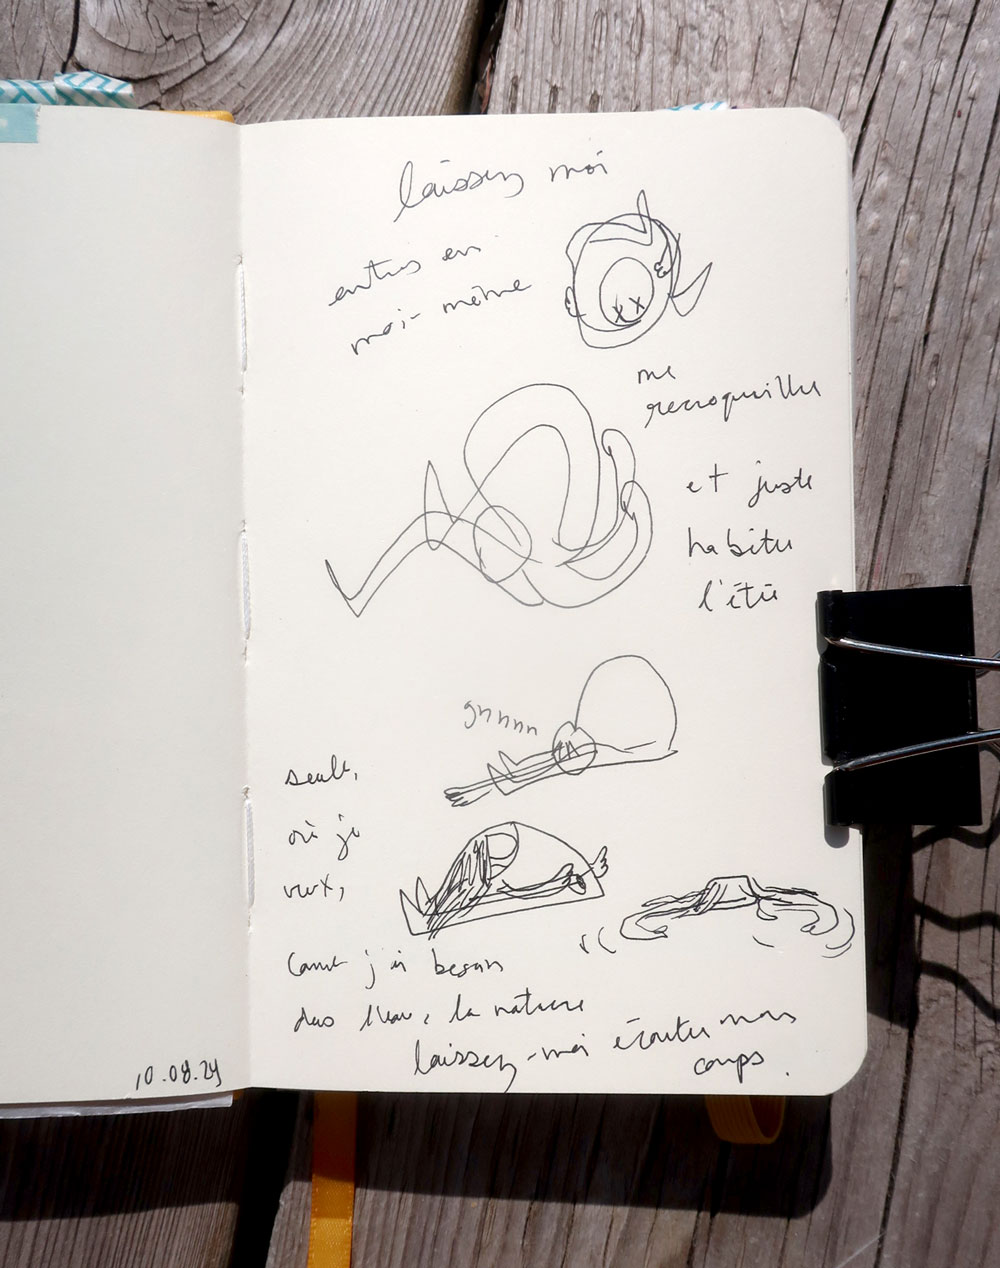 laissez moi
entrer en
moi-même
me
recroqueviller
et juste
habiter
l'été
gnnnn
seule,
où je
veux,
comme j'ai besoin
dans l'eau, la nature
laissez-moi écouter mon
corps.
10.08.24